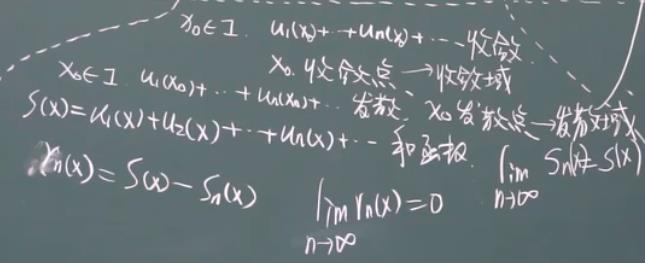 x₀∈I. u₁(x₀)+…+uₙ(x₀)+… 收敛
x₀ 收敛点→收敛域
x₀∈I. u₁(x₀)+…+uₙ(x₀)+… 发散. x₀发散点→发散域
S(x)=u₁(x)+u₂(x)+…+uₙ(x)+… 和函数
lim Sₙ(x)=S(x)
n→∞
rₙ(x)=S(x)-Sₙ(x)
lim rₙ(x)=0
n→∞